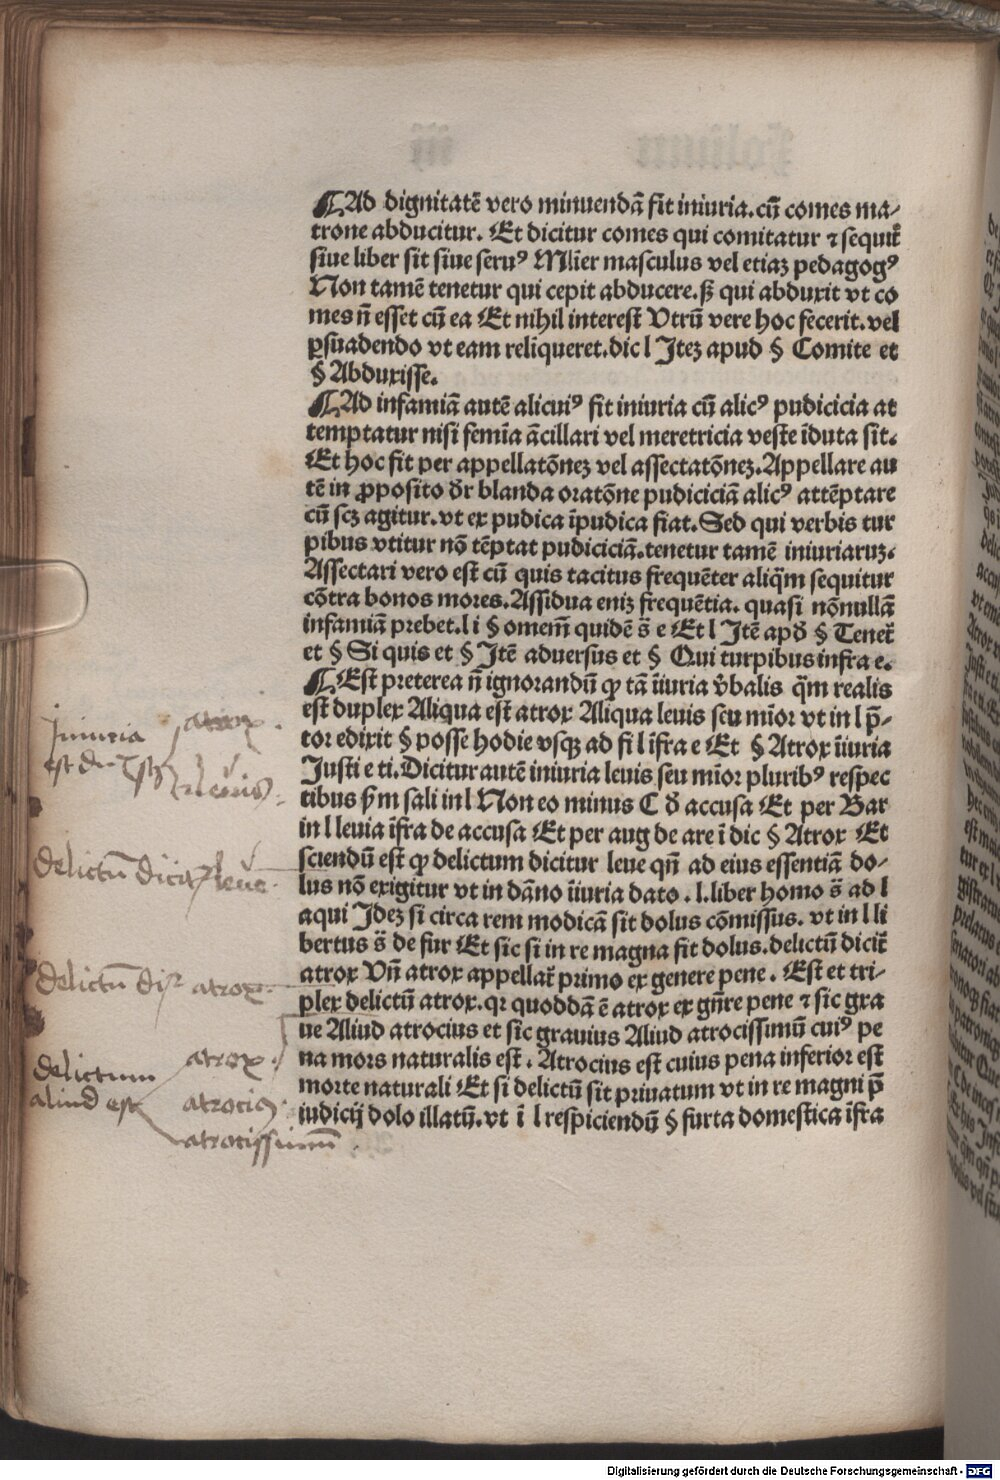 ¶Ad dignitatē vero minuendā fit iniuria.cū comes ma⸗
trone abducitur. Et dicitur comes qui comitatur ⁊ sequit᷑
siue liber sit siue seruꝰ Mlier masculus vel etiaꝫ pedagogꝰ
Non tamē tenetur qui cepit abducere.ẞ qui abduxit vt co
mes n̄ esset cū ea Et nihil interest Vtrū vere hoc fecerit.vel
ꝑsuadendo vt eam reliqueret.dic l Iteꝫ apud § Comite et
§ Abduxisse.
¶Ad infamiā autē alicuiꝰ fit iniuria cū alicꝰ pudicicia at
temptatur nisi femīa ācillari vel meretricia veste īduta sit.
Et hoc fit per appellatōneꝫ vel assectatōneꝫ.Appellare au
tē in ꝓposito d̄r blanda oratōne pudiciciā alicꝰ attēptare
cū scꝫ agitur.vt ex pudica īpudica fiat.Sed qui verbis tur
pibus vtitur nō tēptat pudiciciā.tenetur tamē iniuriaruꝫ.
Assectari vero est cū quis tacitus frequēter aliq̄m sequitur
cōtra bonos mores.Assidua eniꝫ frequētia. quasi nōnullā
infamiā prebet.l i § omem̄ quidē s̄ e Et l Itē apd̄ § Tenet᷑
et § Si quis et § Itē aduersus et § Qui turpibus infra e.
¶Est preterea n̄ ignorandū ꝙ tā īiuria v̄balis q̄m realis
est duplex Aliqua est atrox Aliqua leuis seu mīor vt in l p̄⸗
tor edixit § posse hodie vsqꝫ ad fi l īfra e Et § Atrox īiuria
Iusti e ti.Dicitur autē iniuria leuis seu mīor pluribꝰ respec
tibus ẞm sali in l Non eo minus C d̄ accusa Et per Bar
in l leuia īfra de accusa Et per aug de are ī dic § Atrox Et
sciendū est ꝙ delictum dicitur leue qn̄ ad eius essentiā do⸗
lus nō exigitur vt in dāno īiuria dato . l.liber homo s̄ ad l
aqui Ideꝫ si circa rem modicā sit dolus cōmissus. vt in l li
bertus s̄ de fur Et sic si in re magna fit dolus.delictū dicit᷑
atrox Vn̄ atrox appellat᷑ primo ex genere pene . Est et tri⸗
plex delictū atrox.qꝛ quoddā ē atrox ex gn̄re pene ⁊ sic gra
ue Aliud atrocius et sic grauius Aliud atrocissimū cuiꝰ pe
na mors naturalis est . Atrocius est cuius pena inferior est
morte naturali Et si delictū sit priuatum vt in re magni p̄
iudicij dolo illatū.vt ī l respiciendū § furta domestica īfra
Iniuria
atrox
leuis
delictū dicit᷑ leue
delictū di᷑ atrox
delictum
aliud est
atrox
atrociꝰ
atrocissimum
Digitalisierung gefördert durch die Deutsche Forschungsgemeinschaft - DFG